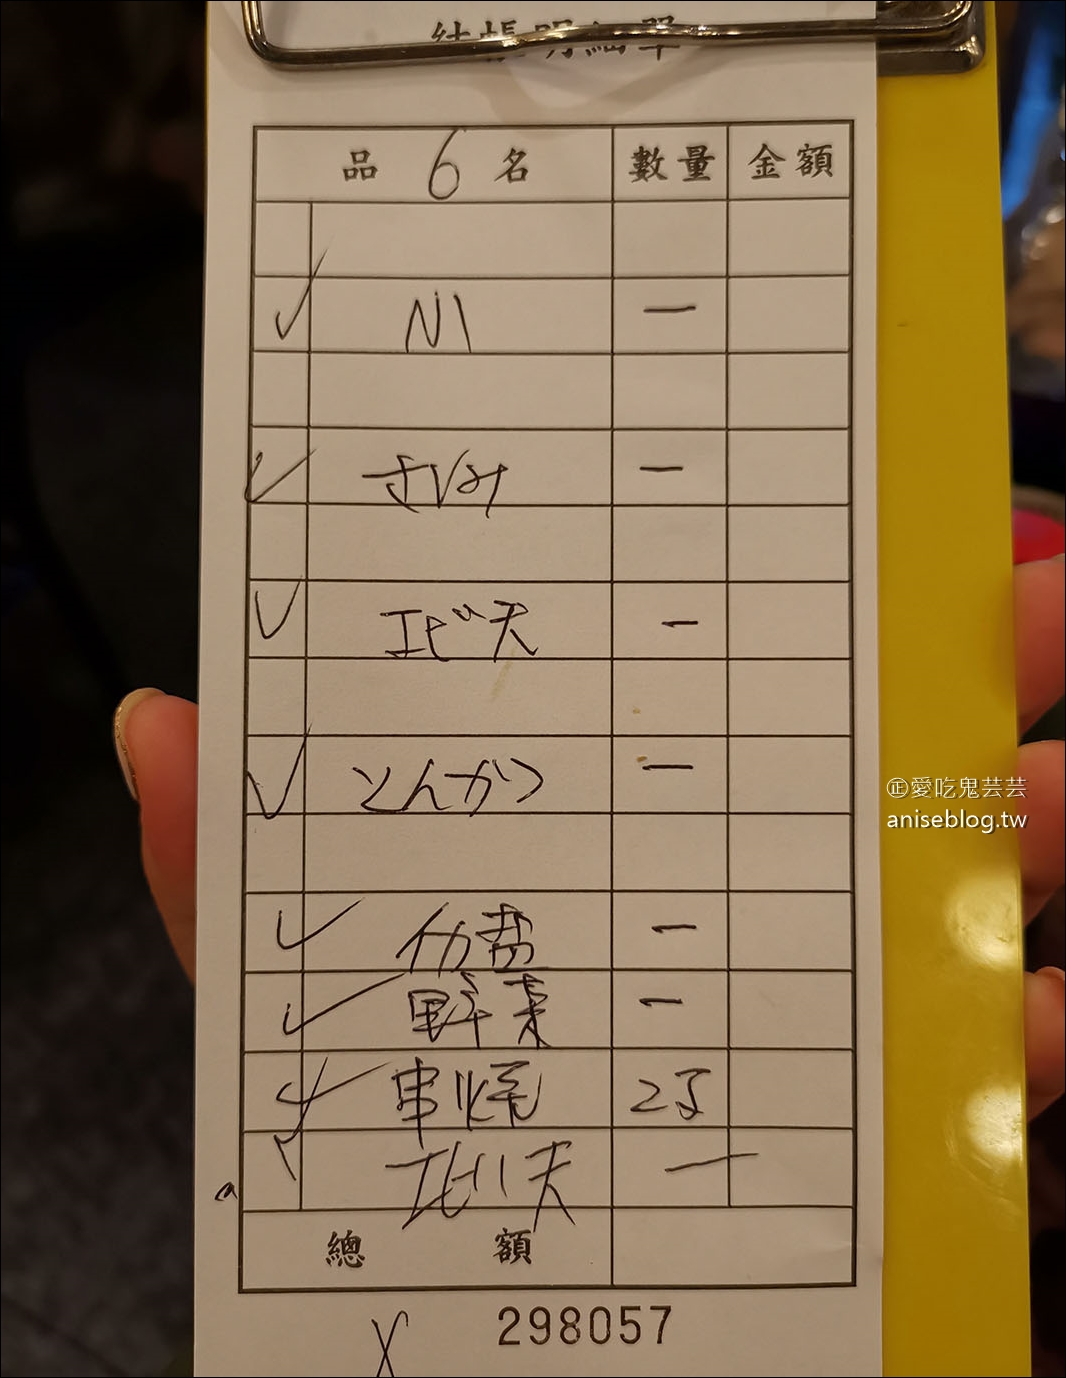 結帳明細單
品 6 名 數量 金額
一
さしみ 一
エビ天 一
とんかつ 一
一
野菜 一
串燒 2子
エビ天 一
a
總額
298057
X
㊣愛吃鬼芸芸
aniseblog.tw